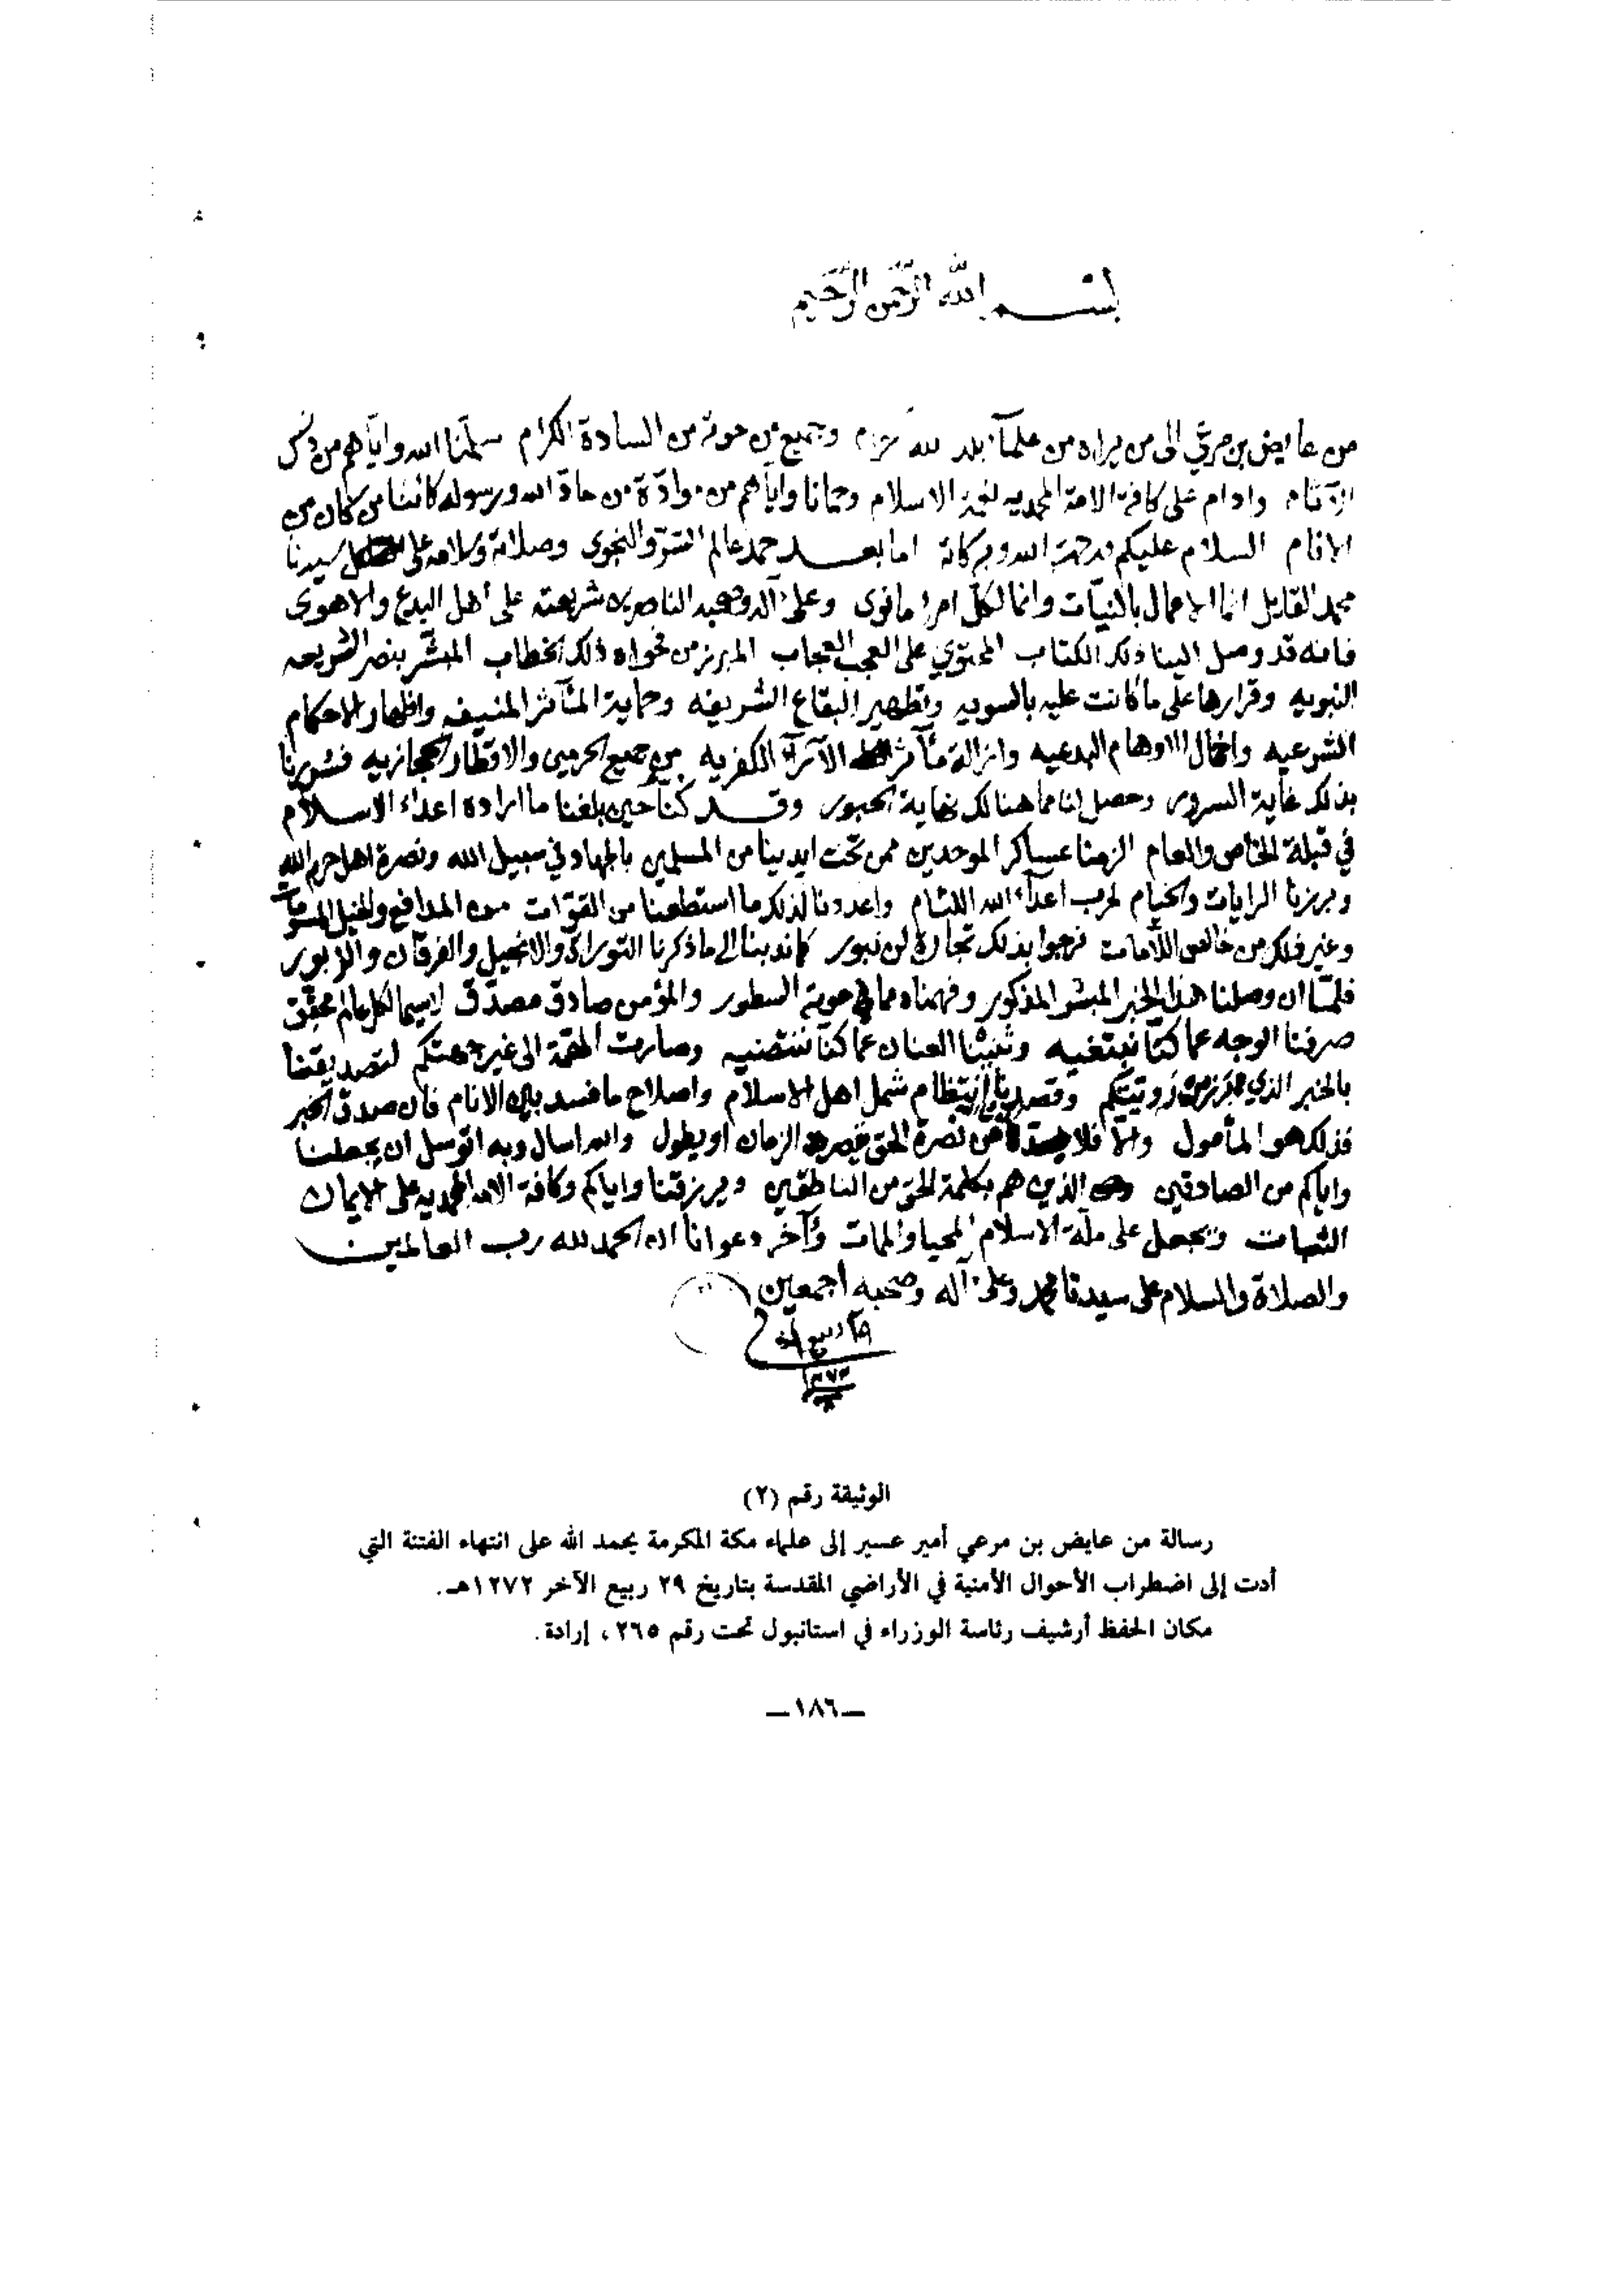 بسم الله الرحمن الرحيم
من عايض بن مرعي الى من يراه من علمآء بلد الله وجميع من حوته من السادة الكرام سلمنا الله واياهم من دنس
الآثام وادام على كافة الامة المحمديه نعمة الاسلام وحمانا واياهم من موادّة من حادّ الله ورسوله كائنا من كان من
الانام السلام عليكم ورحمة الله وبركاته اما بعد حمد عالم السرّ والنجوى وصلاته وسلامه على سيدنا
محمد القايل انما الاعمال بالنيّات وانما لكل امرء مانوى وعلى آله وصحبه الناصرين شريعته على أهل البدع والاهوى
فانه قد وصل الينا ذلك الكتاب المحتوي على العجب العجاب المبرز من فحواه ذلك الخطاب المبشّر بنصر الشريعه
النبويه وقرارها على ما كانت عليه بالسويه وتطهير البقاع الشريفه وحماية المآثر المنيفه واظهار الاحكام
الشرعيه واخمال الاوهام البدعيه وازالة مآثر الآرآء الكفريه من جميع الحرمين والاقطار الحجازيه فسررنا
بذلك غاية السرور وحصل لنا مما هنالك نهاية الحبور وقد كنا حين بلغنا ما اراده اعداء الاسلام
في قبلة الخاص والعام الزمنا عساكر الموحدين ممن تحت ايدينا من المسلمين بالجهاد في سبيل الله ونصرة اهل حرم الله
وبرزنا الرايات والخيام لحرب اعدآء الله اللئام واعددنا لذلك ما استطعنا من القوّات من المدافع والخيل المسوّمات
وغير ذلك من خالص اللأمات نرجوا بذلك تجارة لن تبور كما ندبنا الى ما ذكرنا التوراة والانجيل والفرقان والزبور
فلمّا ان وصلنا هذا الخبر المبشر المذكور وفهمناه مما في حوية السطور والمؤمن صادق مصدّق لاسيما لكل عالم محقق
صرفنا الوجه عما كنّا نبتغيه وثنينا العنان عما كنّا ننتضيه وصارت الهمّة الى غير جهتكم لتصديقنا
بالخبر الذي من رويتكم وقصدنا انتظام شمل اهل الاسلام واصلاح ما فسد بين الانام فان صدق الخبر
فذلك هو المأمول والاّ فلا من نصرة الحق الزمان او يطول والله اسال وبه اتوسل ان يجعلنا
واياكم من الصادقين الذين هم بكلمة الحق من الناطقين ويرزقنا واياكم وكافة الامة المحمديه على الايمان
الثبات ويجعل على ملّة الاسلام المحيا والممات وآخر دعوانا ان الحمد لله رب العالمين
والصلاة والسلام على سيدنا محمد وعلى آله وصحبه اجمعين
٢٩ ربيع آخر
١٢٧٢
الوثيقة رقم (٢)
رسالة من عايض بن مرعي أمير عسير إلى علماء مكة المكرمة يحمد الله على انتهاء الفتنة التي
أدت إلى اضطراب الأحوال الأمنية في الأراضي المقدسة بتاريخ ٢٩ ربيع الآخر ١٢٧٢هـ.
مكان الحفظ أرشيف رئاسة الوزراء في استانبول تحت رقم ٢٦٥، إرادة.
—١٨٦—